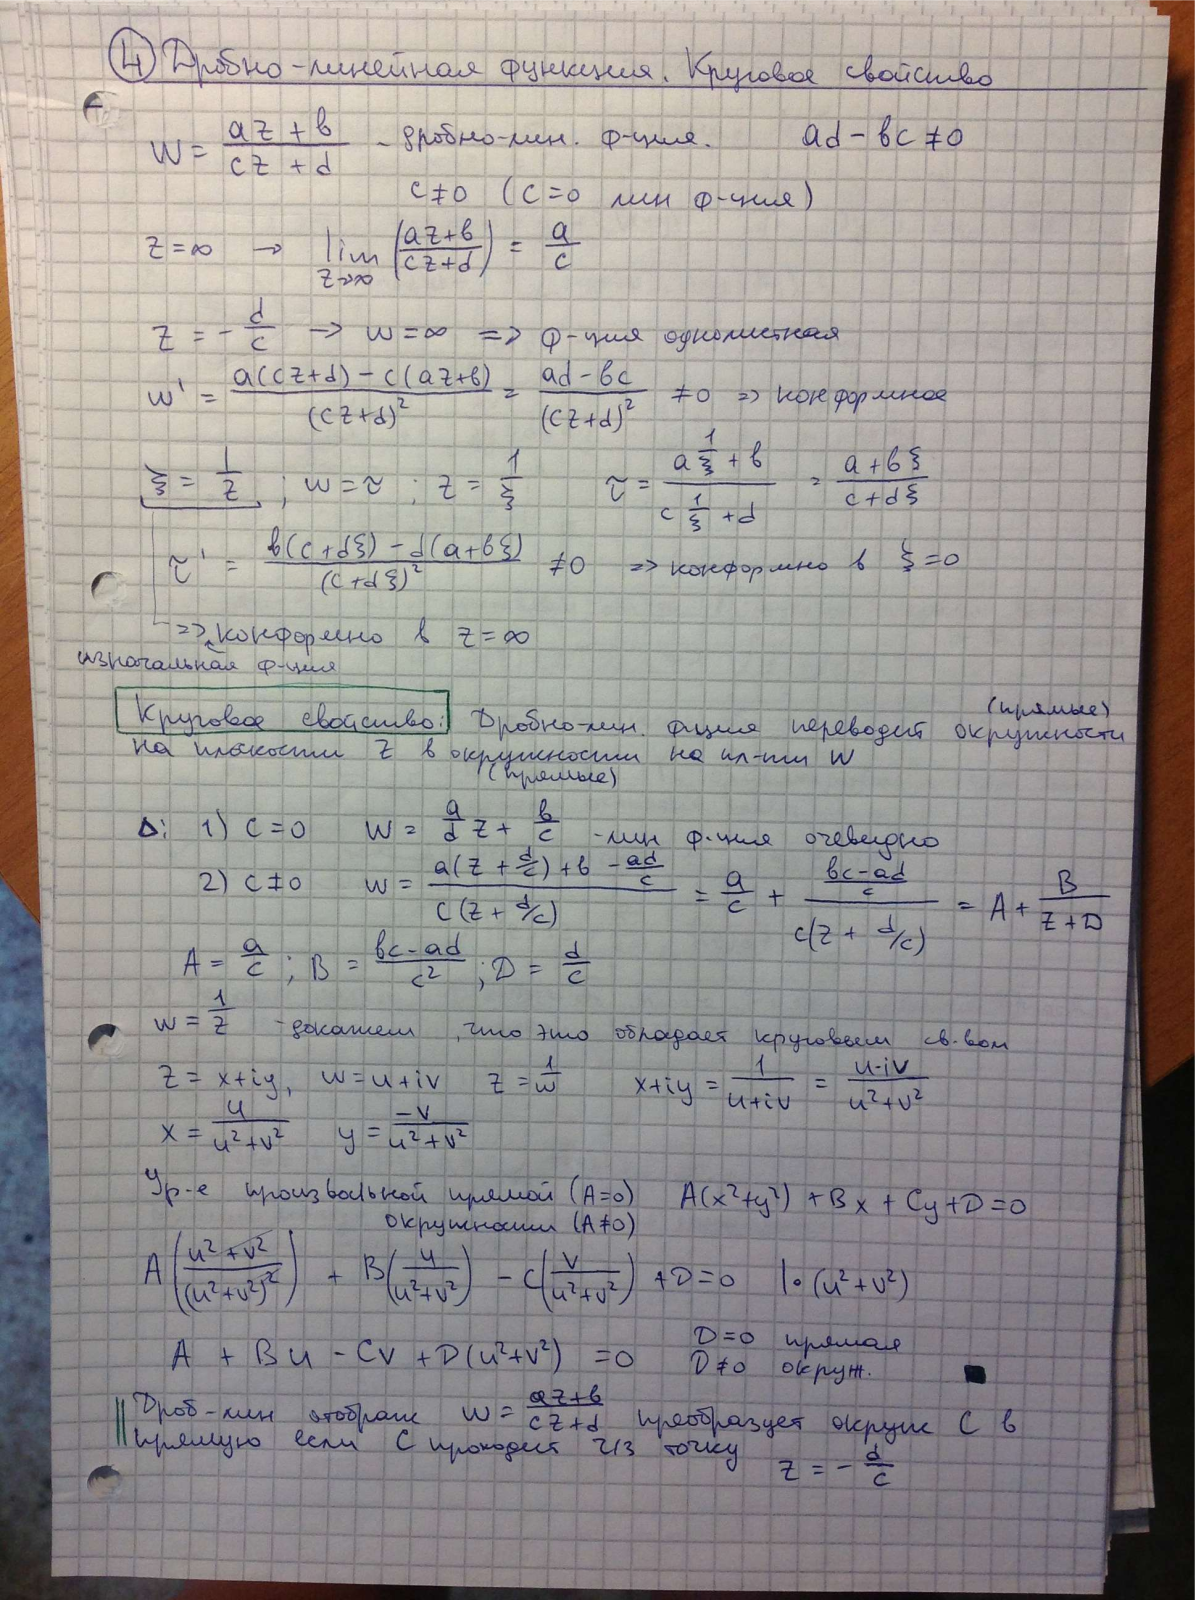 ④ Дробно-линейная функция. Круговое свойство
w = (az + b)/(cz + d) - дробно-лин. ф-ция. ad - bc ≠ 0
c ≠ 0 (c = 0 лин ф-ция)
z = ∞ → lim z→∞ ((az+b)/(cz+d)) = a/c
z = - d/c → w = ∞ => ф-ция однолистная
w' = (a(cz+d) - c(az+b))/(cz+d)² = (ad - bc)/(cz+d)² ≠ 0 => конформное
ξ = 1/z ; w = τ ; z = 1/ξ τ = (a 1/ξ + b)/(c 1/ξ + d) = (a + bξ)/(c + dξ)
τ' = (b(c + dξ) - d(a + bξ))/(c + dξ)² ≠ 0 => конформно в ξ = 0
=> конформно в z = ∞
изначальная ф-ция
Круговое свойство: Дробно-лин. ф-ция переводит окружности (прямые)
на плоскости z в окружности на пл-ти w
(прямые)
Δ: 1) c = 0 w = a/d z + b/c - лин ф-ция очевидно
2) c ≠ 0 w = (a(z + d/c) + b - ad/c)/(c(z + d/c)) = a/c + ((bc - ad)/c)/(c(z + d/c)) = A + B/(z + D)
A = a/c ; B = (bc - ad)/c² ; D = d/c
w = 1/z - докажем, что это обладает круговым св-вом
z = x+iy, w = u+iv z = 1/w x+iy = 1/(u+iv) = (u-iv)/(u²+v²)
x = u/(u²+v²) y = -v/(u²+v²)
Ур-е произвольной прямой (A=0) A(x²+y²) + Bx + Cy + D = 0
окружности (A≠0)
A((u²+v²)/(u²+v²)²) + B(u/(u²+v²)) - C(v/(u²+v²)) + D = 0 |· (u²+v²)
A + Bu - Cv + D(u²+v²) = 0 D=0 прямая
D≠0 окруж.
Дроб-лин отображ w = (az+b)/(cz+d) преобразует окруж C в
прямую если C проходит ч/з точку
z = - d/c